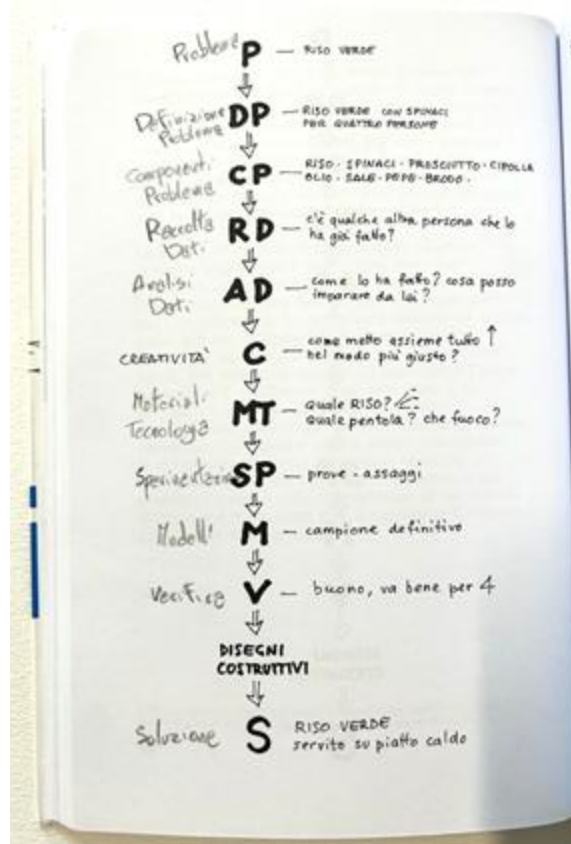 Problema P — RISO VERDE
Definizione Problema DP — RISO VERDE CON SPINACI
PER QUATTRO PERSONE
Componenti Problema CP — RISO · SPINACI · PROSCIUTTO · CIPOLLA
OLIO · SALE · PEPE · BRODO ·
Raccolta Dati RD — c'è qualche altra persona che lo
ha già fatto?
Analisi Dati AD — come lo ha fatto? cosa posso
imparare da lei?
CREATIVITÀ C — come metto assieme tutto ↑
nel modo più giusto?
Materiali Tecnologia MT — Quale RISO?
Quale pentola? che fuoco?
Sperimentazione SP — prove - assaggi
Modelli M — campione definitivo
Verifica V — buono, va bene per 4
DISEGNI
COSTRUTTIVI
Soluzione S RISO VERDE
servito su piatto caldo